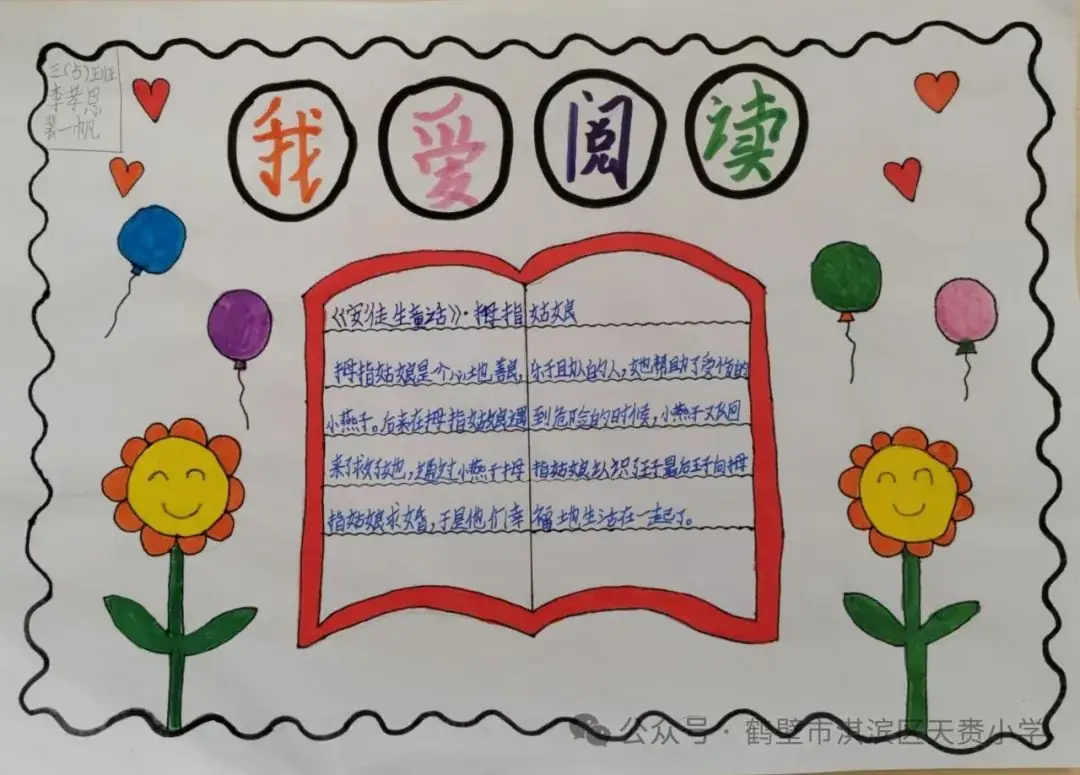 三(5)班
李孝恩
裴一帆
我爱阅读
《安徒生童话》·拇指姑娘
拇指姑娘是个心地善良,乐于助人的人,她帮助了受伤的
小燕子。后来在拇指姑娘遇到危险的时候,小燕子又飞回
来了救了她,通过小燕子拇指姑娘认识了王子最后王子向拇
指姑娘求婚,于是他们幸福地生活在一起了。
公众号·鹤壁市淇滨区天赉小学